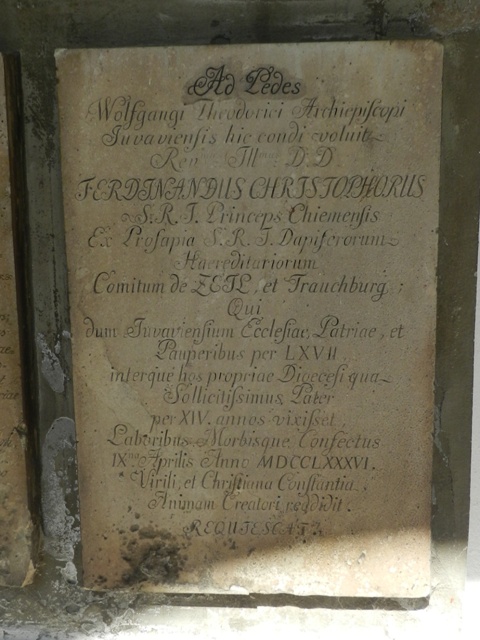 Ad Pedes
Wolfgangi Theodorici Archiepiscopi
Juvaviensis hic condi voluit
Rev Ill D.D
FERDINANDUS CHRISTOPHORUS
S.R.I. Princeps Chiemensis
Ex Prosapia S.R.I. Dapiferorum
Haereditariorum
Comitum de ZEIL, et Trauchburg;
Qui
dum Juvaviensium Ecclesiae, Patriae, et
Pauperibus per LXVII
interque hos propriae Dioecesi qua
Sollicitissimus Pater
per XIV. annos vixisset
Laboribus Morbisque Confectus
IX na Aprilis Anno MDCCLXXXVI.
Virili, et Christiana Constantia
Animam Creatori reddidit.
REQUIESCAT